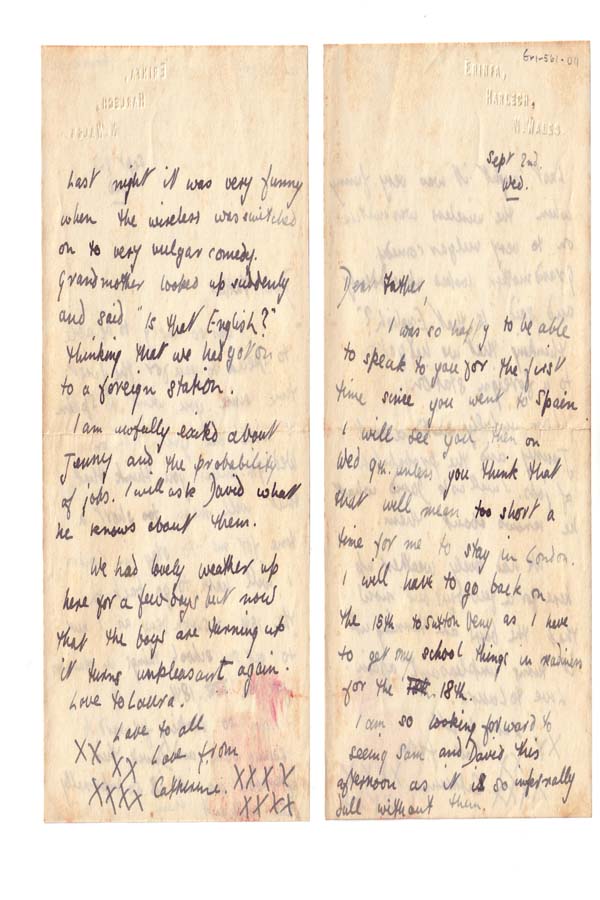 Gr1-561-011
ERINFA,
HARLECH,
N. WALES
Sept 2nd.
Wed.
Dear Father,
I was so happy to be able
to speak to you for the first
time since you went to Spain.
I will see you then on
Wed 9th. unless you think that
that will mean too short a
time for me to stay in London.
I will have to go back on
the 15th to Sutton Veny as I have
to get my school things in readiness
for the 18th.
I am so looking forward to
seeing Sam and David this
afternoon as it is so infernally
dull without them.
ERINFA,
HARLECH,
N. WALES
Last night it was very funny
when the wireless was switched
on to very vulgar comedy.
Grandmother looked up suddenly
and said "Is that English?"
thinking that we had got on
to a foreign station.
I am awfully excited about
Jenny and the probability
of jobs. I will ask David what
he knows about them.
We had lovely weather up
here for a few days but now
that the boys are turning up
it turns unpleasant again.
Love to Laura.
Love to all
XX XX Love from
XXXX Catherine. XXXX
XXXX